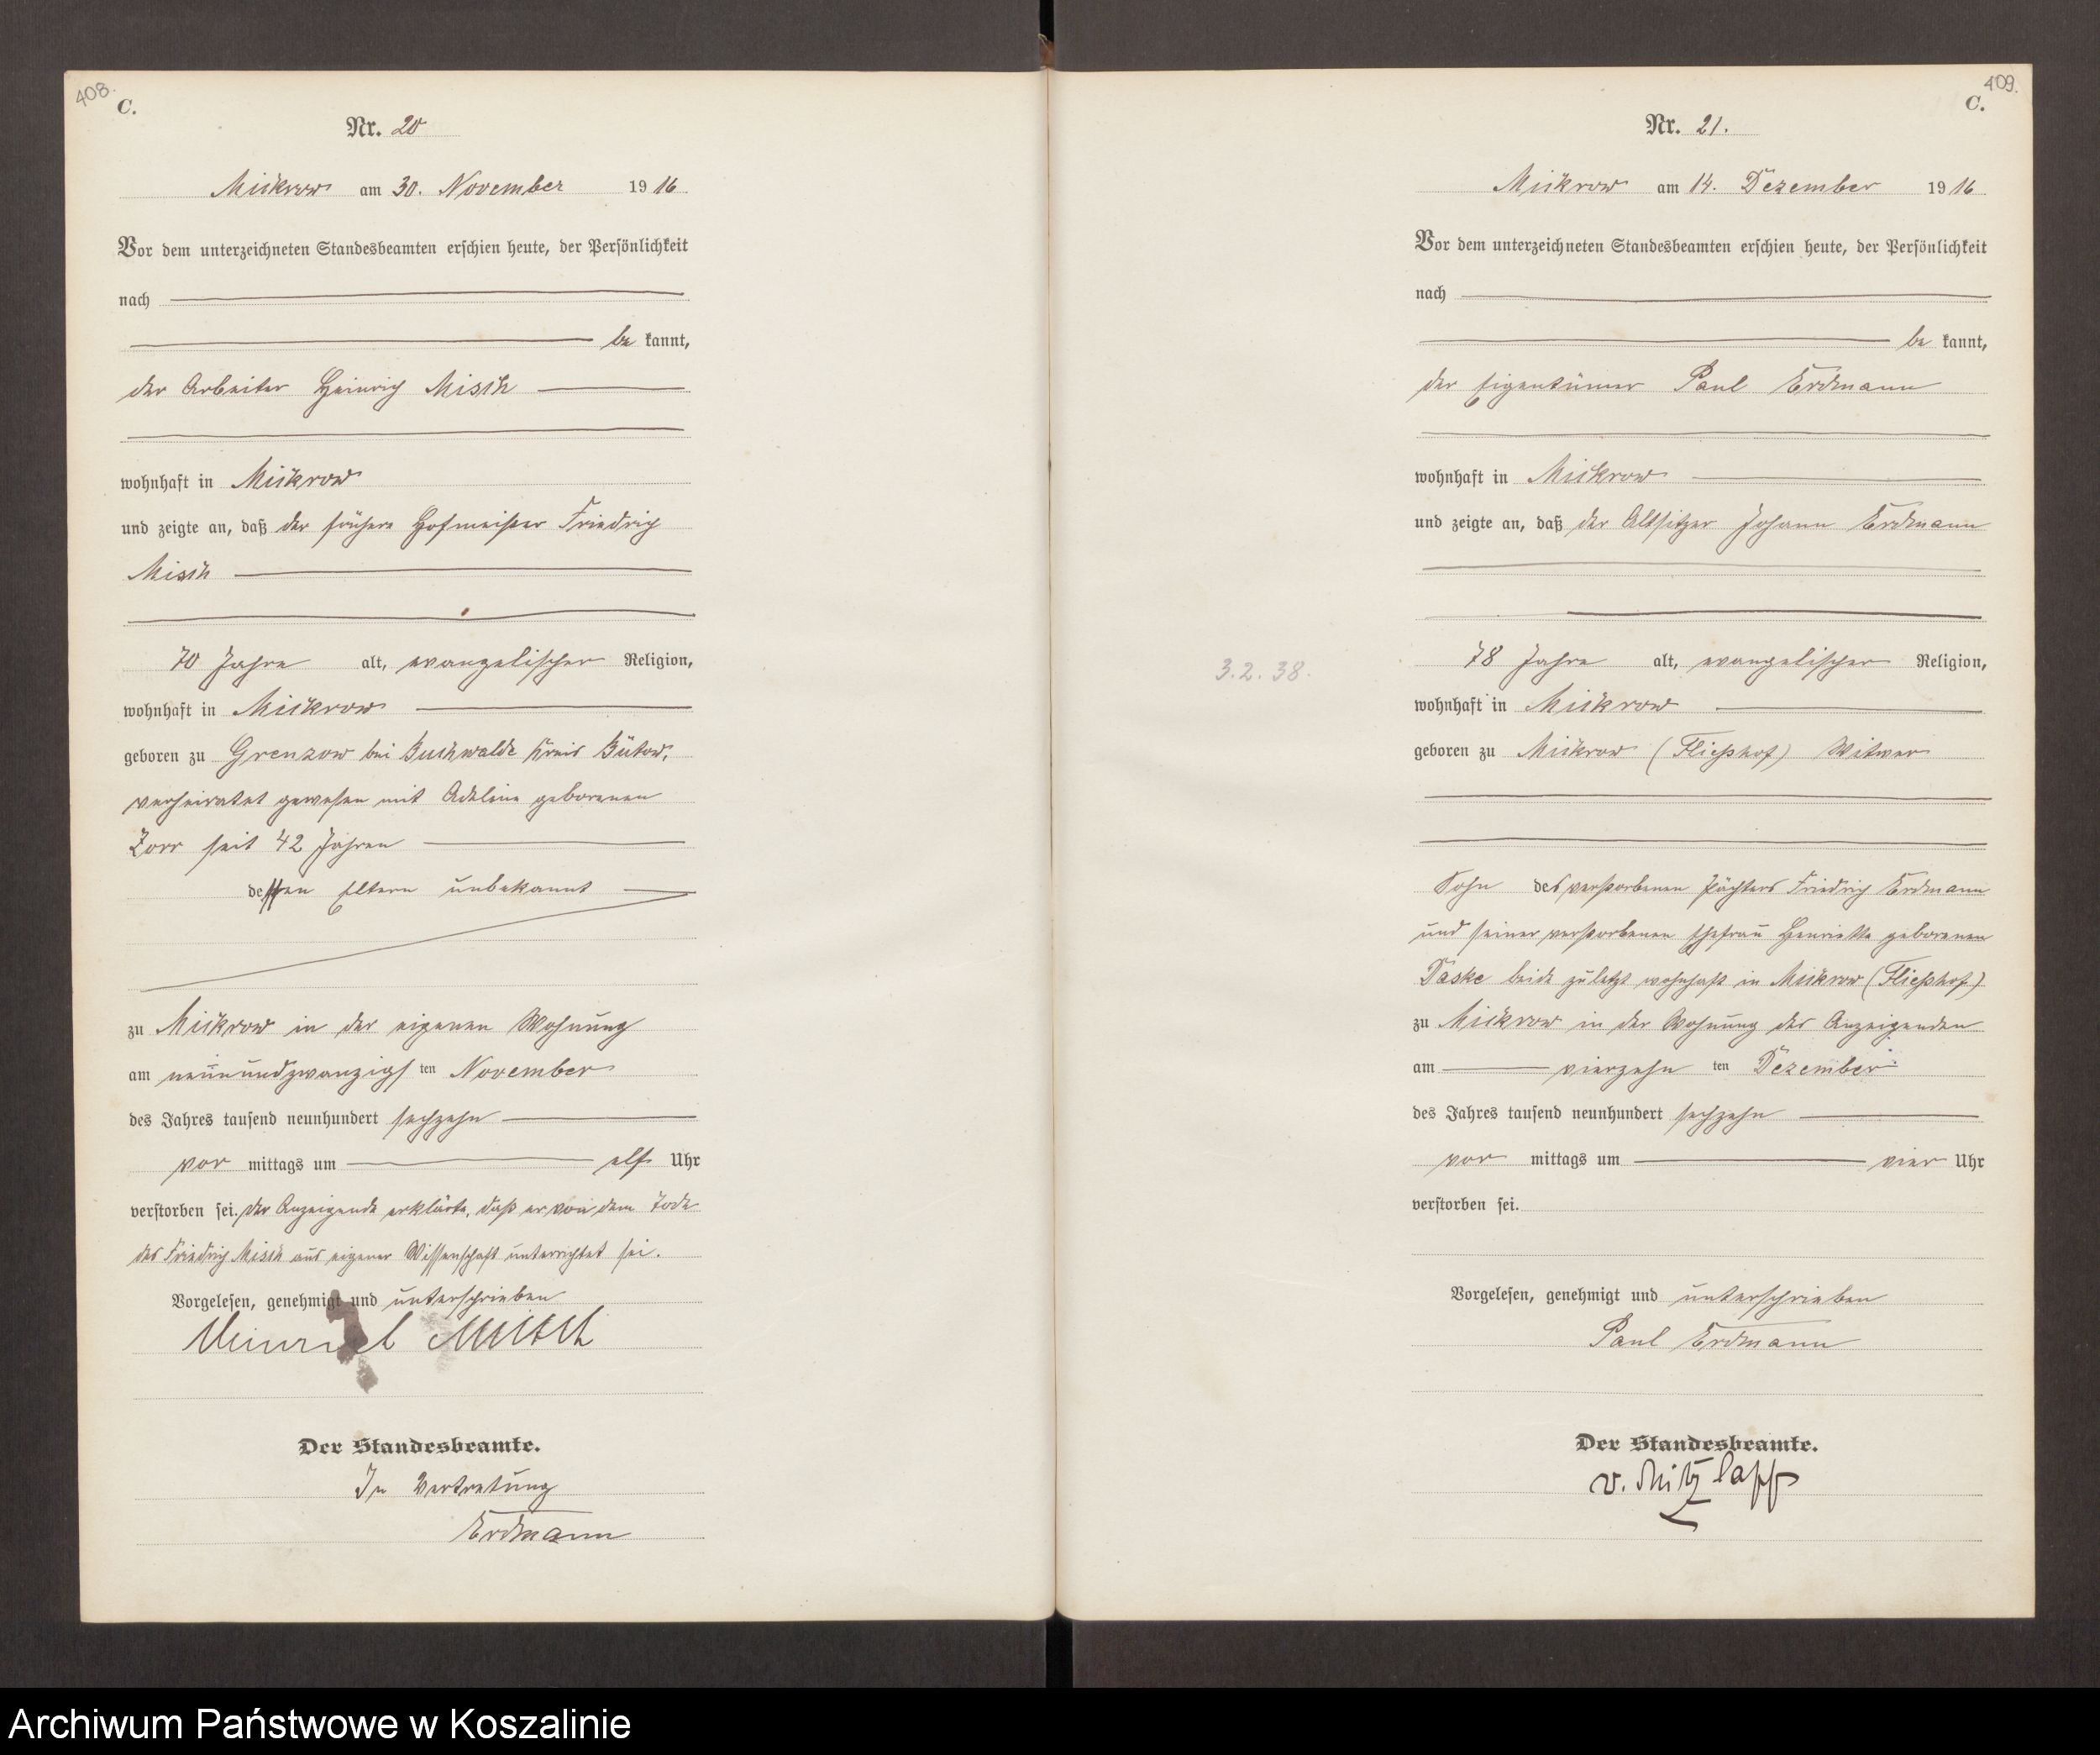 408.
C.
Nr. 20
Mickrow am 30. November 1916
Vor dem unterzeichneten Standesbeamten erschien heute, der Persönlichkeit
nach
be kannt,
der Arbeiter Heinrich Misch
wohnhaft in Mickrow
und zeigte an, daß der frühere Hofmeister Friedrich
Misch
70 Jahre alt, evangelischer Religion,
wohnhaft in Mickrow
geboren zu Grenzow bei Buchwalde Kreis Bütow,
verheiratet gewesen mit Adeline geborenen
Zorr seit 42 Jahren
dessen Eltern unbekannt
zu Mickrow in der eigenen Wohnung
am neunundzwanzigsten November
des Jahres tausend neunhundert sechzehn
vor mittags um elf Uhr
verstorben sei. Der Anzeigende erklärte, daß er von dem Tode
des Friedrich Misch aus eigener Wissenschaft unterrichtet sei.
Vorgelesen, genehmigt und unterschrieben
Heinrich Misch
Der Standesbeamte.
In Vertretung
Erdmann
409.
C.
Nr. 21.
Mickrow am 14. Dezember 1916
Vor dem unterzeichneten Standesbeamten erschien heute, der Persönlichkeit
nach
be kannt,
der Eigentümer Paul Erdmann
wohnhaft in Mickrow
und zeigte an, daß der Altsitzer Johann Erdmann
3.2.38.
78 Jahre alt, evangelischer Religion,
wohnhaft in Mickrow
geboren zu Mickrow (Fließhof) Witwer
Sohn des verstorbenen Pächters Friedrich Erdmann
und seiner verstorbenen Ehefrau Henriette geborenen
Daske beide zuletzt wohnhaft in Mickrow (Fließhof)
zu Mickrow in der Wohnung des Anzeigenden
am vierzehn ten Dezember
des Jahres tausend neunhundert sechzehn
vor mittags um vier Uhr
verstorben sei.
Vorgelesen, genehmigt und unterschrieben
Paul Erdmann
Der Standesbeamte.
v. Mitzlaff
Archiwum Państwowe w Koszalinie